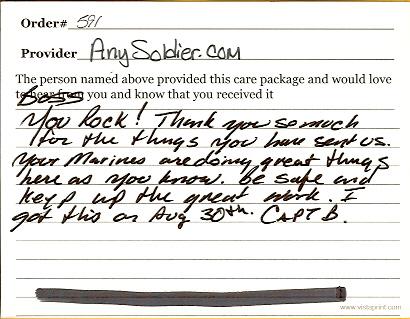 Order# 591
Provider AnySoldier.com
The person named above provided this care package and would love
to hear from you and know that you received it
Boss
You Rock! Thank you so much
for the things you have sent us.
Your Marines are doing great things
here as you know. be safe and
keep up the great work. I
got this on Aug 30th. CAPT B.
www.vistaprint.com